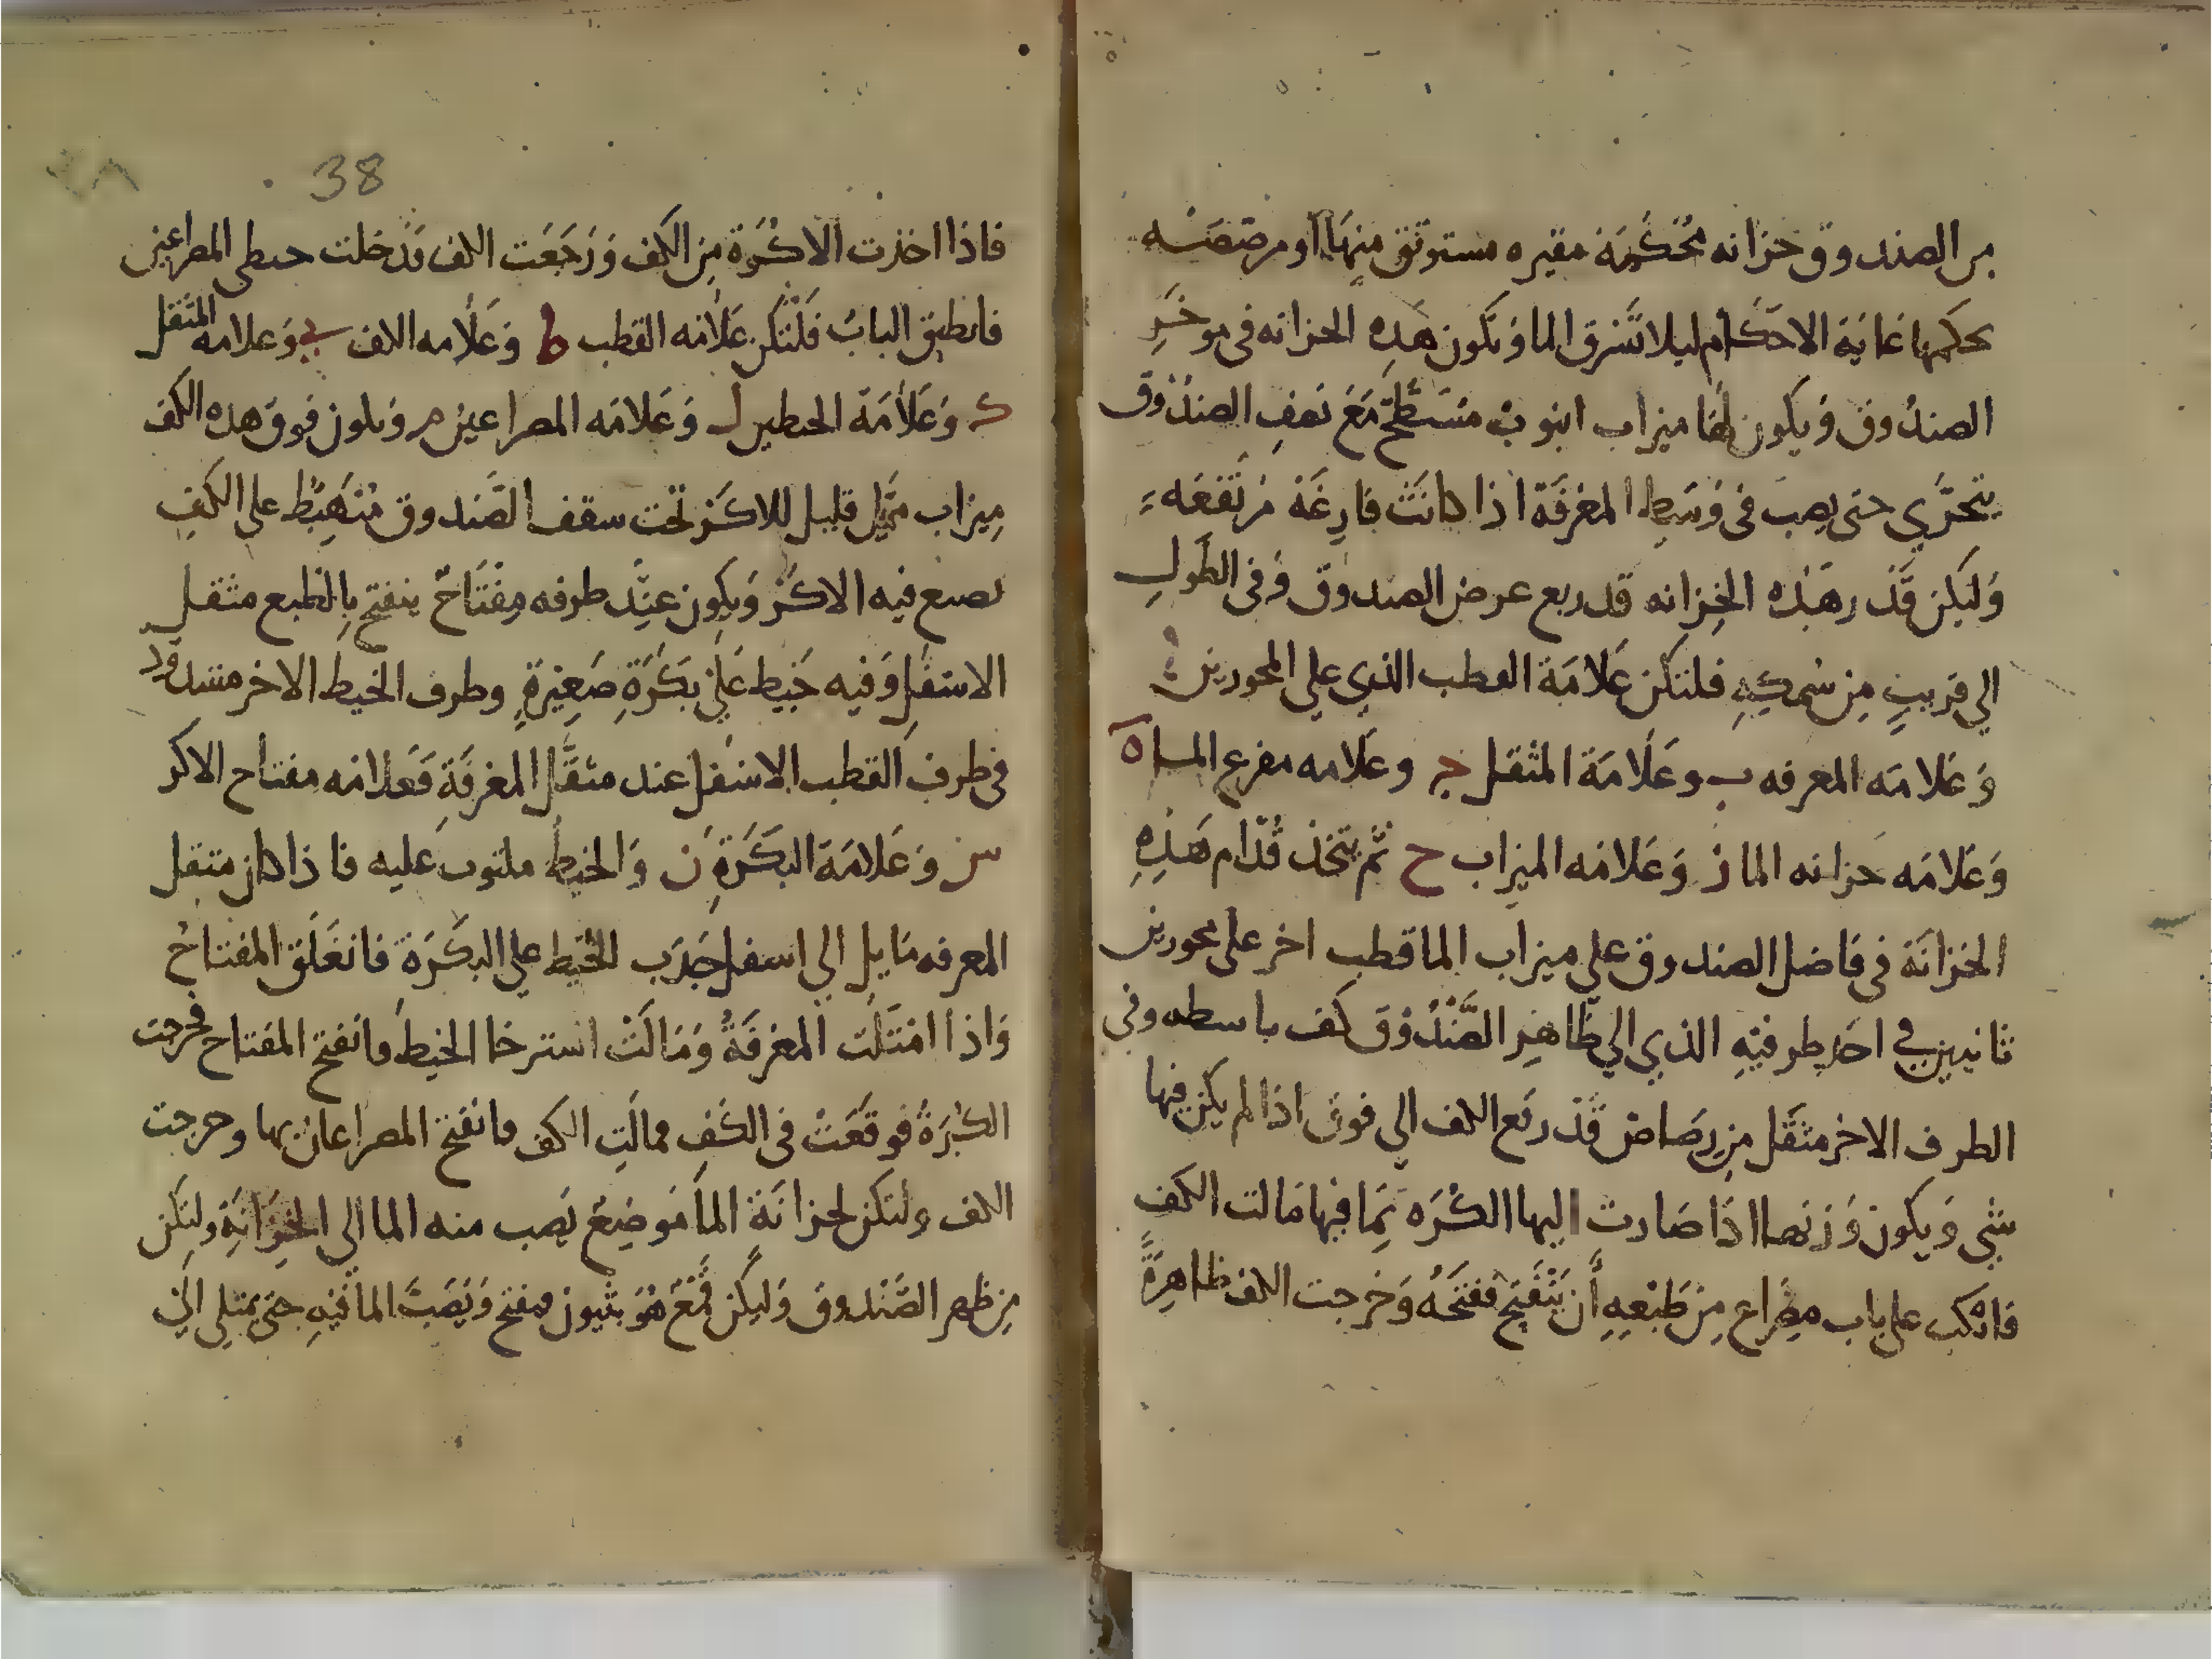 من الصندوق خزانه مُحْكَمَة مقيره مستوثق مِنهَا او مرصصَه
يحكمها غَايَة الاحكَام ليلا تسرق الما وَتكون هَذِهِ الخزانه في موخَرِ
الصندُوق وَيكون لهَا ميزاب انبوبٌ مُسَطَّح مَعَ نصفِ الصندُوق
يتحرَّي حتى يصبَ في وَسَطِ المغرفَة اذا كانَتْ فارِغَة مُرتَفعَه
وَليَكن قَدْر هَذِه الخِزانه قدر بع عرض الصندوق وَفي الطولِ
الي قريبٍ مِن سُمكِهِ فلتكن عَلامَة القطب الذي علي المحورين
وَعَلامَه المعرفه ب وعَلَامَة المثقل ج وعَلامه مفرع الماء ه
وَعَلامَه حزانه الما ز وَعَلامَه الميزاب ح ثم يتخذ قُدّام هَذِهِ
الخزانَة في فاضل الصندوق علي ميزاب الما قطب اخر علي محورين
ثانيين في احَد طرفيْهِ الذي الي ظَاهِرِ الصَّنْدُوق كَف باسطه وفي
الطرف الاخر مثَقَل مِن رِصَاص قَدْ رفع الكف الي فوق اذا لم يكن فيها
شي وَيكون وَزنها اذَا صَارت اليها الكُرَه بِمَا فيها مَالت الكَف
فانكب علي باب مصراع مِن طَبْعِهِ أَن يَنْفَتِح ففَتَحَهُ وَخرجت الكف ظاهِرةً
38
فاذا اخذت الاكُرَة مِن الكَف وَرَجَعَت الكف قَد دخلت حبطي المصراعين
فانطبق البابُ فَلْتَكُن عَلَامَه القطب ط وَعَلَامه الكف ي وَعَلامه المثقل
ك وَعَلَامَة الخيطين ل وَعَلامَه المصراعين م وَيكون فوق هذه الكف
مِيزاب مَمَيَّل قليل للاكَر تحت سقف الصَّندوق مُتَهَبِّط علي الكفِ
يصنع فيه الاكَر وَيكون عِنْد طرفه مِفْتَاحٌ ينفتح بِالطبع مثقل
الاسفل وَفيه خَيط عَلَيْ بَكَرَةٍ صَغِيْرَةٍ وطرف الخيط الاخر مشدود
في طرف القطب الاسفل عند مثقَّل المغرفَةِ فَعَلَامه مفتاح الاكر
س وَعَلامَة البَكَرَةِ ن وَالخيط ملتوب عَليه فاذا كان مثقل
المعرفه مَايل الي اسفل جَذب الخيط علي البكَرَة فانغَلَق المفتاحُ
وَاذا امْتَلَت المغرفَةُ وَمَالَتْ استرخا الخيط وانفتح المفتاح فخرجت
الكُرَةُ فوقَعَتْ في الكَفِ فمالَتِ الكف وانفتح المصراعان بها وخرجت
الكف ولتكن لحزانَة المَا مَوضِعٌ يَصب منه الما الي الخِزَانَةِ وليَكن
مِن ظهر الصَّنْدوق وَليكن قمْعٌ هُوَ بثيون مفتح وَيَصَبَّ الما فيهِ حتى يمتلي الي